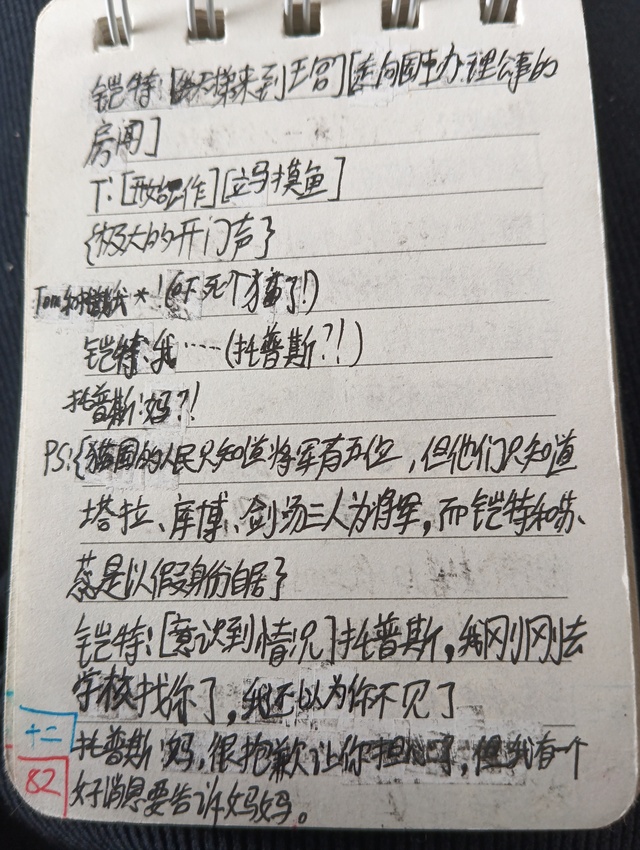 铠特:[终天梯来到王宫][走向国主办理公事的
房间]
T:[开始工作][立马摸鱼]
{极大的开门声}
Tom和托普斯*!(吓死个猫了!)
铠特:我……(托普斯?!)
托普斯:妈?!
PS:{猫国的人民只知道将军有五位,但他们只知道
塔拉、库博、剑汤三人为将军,而铠特和苏、
蕊是以假身份自居}
铠特:[意识到情况]托普斯,我刚刚去
学校找你了,我还以为你不见了
十二
托普斯:妈,很抱歉让你担心了,但我有一个
82
好消息要告诉妈妈。